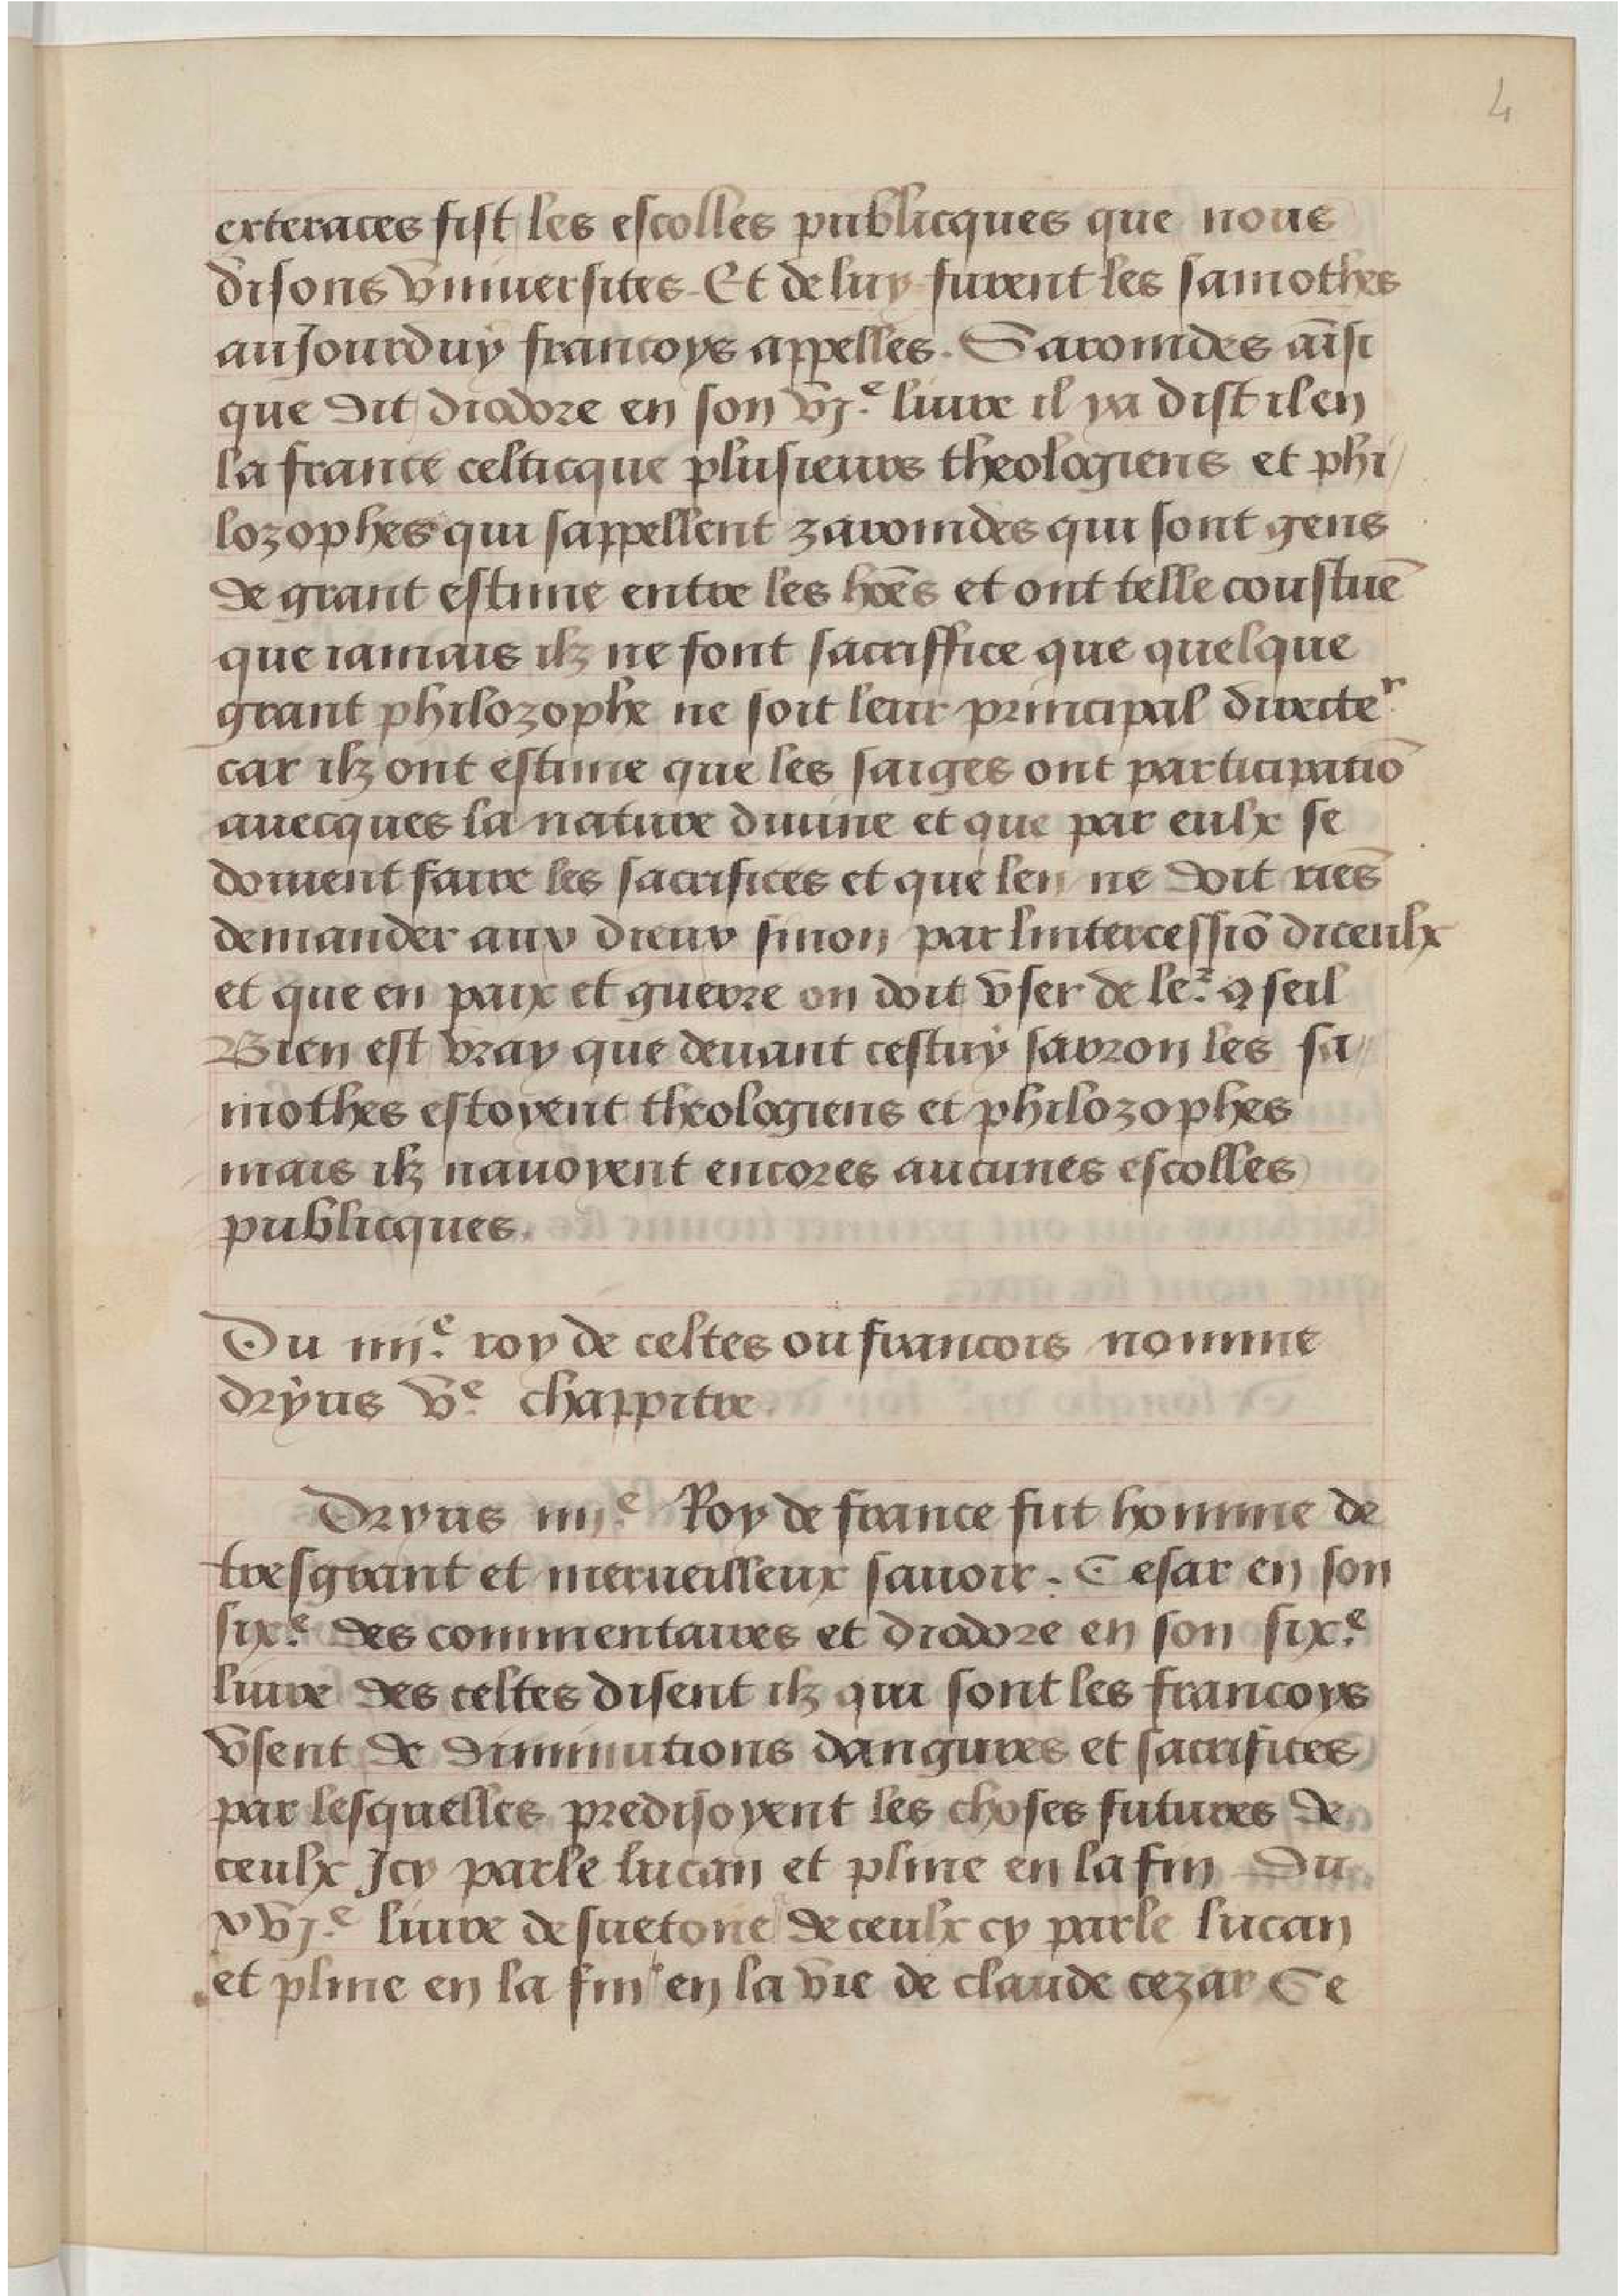 4
exteraces fist les escolles publicques que nous
disons vniuersites. Et de luy furent les samothes
auJourduy francoys appelles. Saronides aīsi
que dit diodore en son vj.e liure il ya dist il en
la france celticque plusieurs theologiens et phi/
lozophes qui sappellent zaronides qui sont gens
de grant estime entre les hōes et ont telle coustuē
que iamais ilz ne font sacriffice que quelque
grant philozophe ne soit leur principal directer
car ilz ont estime que les saiges ont participatiō
auecques la nature diuine et que par eulx se
doiuent faire les sacrifices et que len ne doit riēs
demander aux dieux sinon par lintercessiō diceulx
et que en paix et guerre on doit vser de ler ꝯseil
Bien est vray que deuant cestuy sarron les sa//
mothes estoyent theologiens et philozophes
mais ilz nauoyent encores aucunes escolles
publicques.
Du iiij.e roy de celtes ou francois nomme
dryus v.e chappitre.
Dryus iiij.e Roy de france fut homme de
tresgrant et merueilleux sauoir. Cesar en son
six.e des commentaires et diodore en son six.e
liure des celtes disent ilz qui sont les francoys
vsent de diminutions daugures et sacrifices
par lesquelles predisoyent les choses futures de
ceulx Jcy parle lucan et pline en la fin du
xvj.e liure de suetone de ceulx cy parle lucan
et pline en la fin en la vie de claude cezar Ce